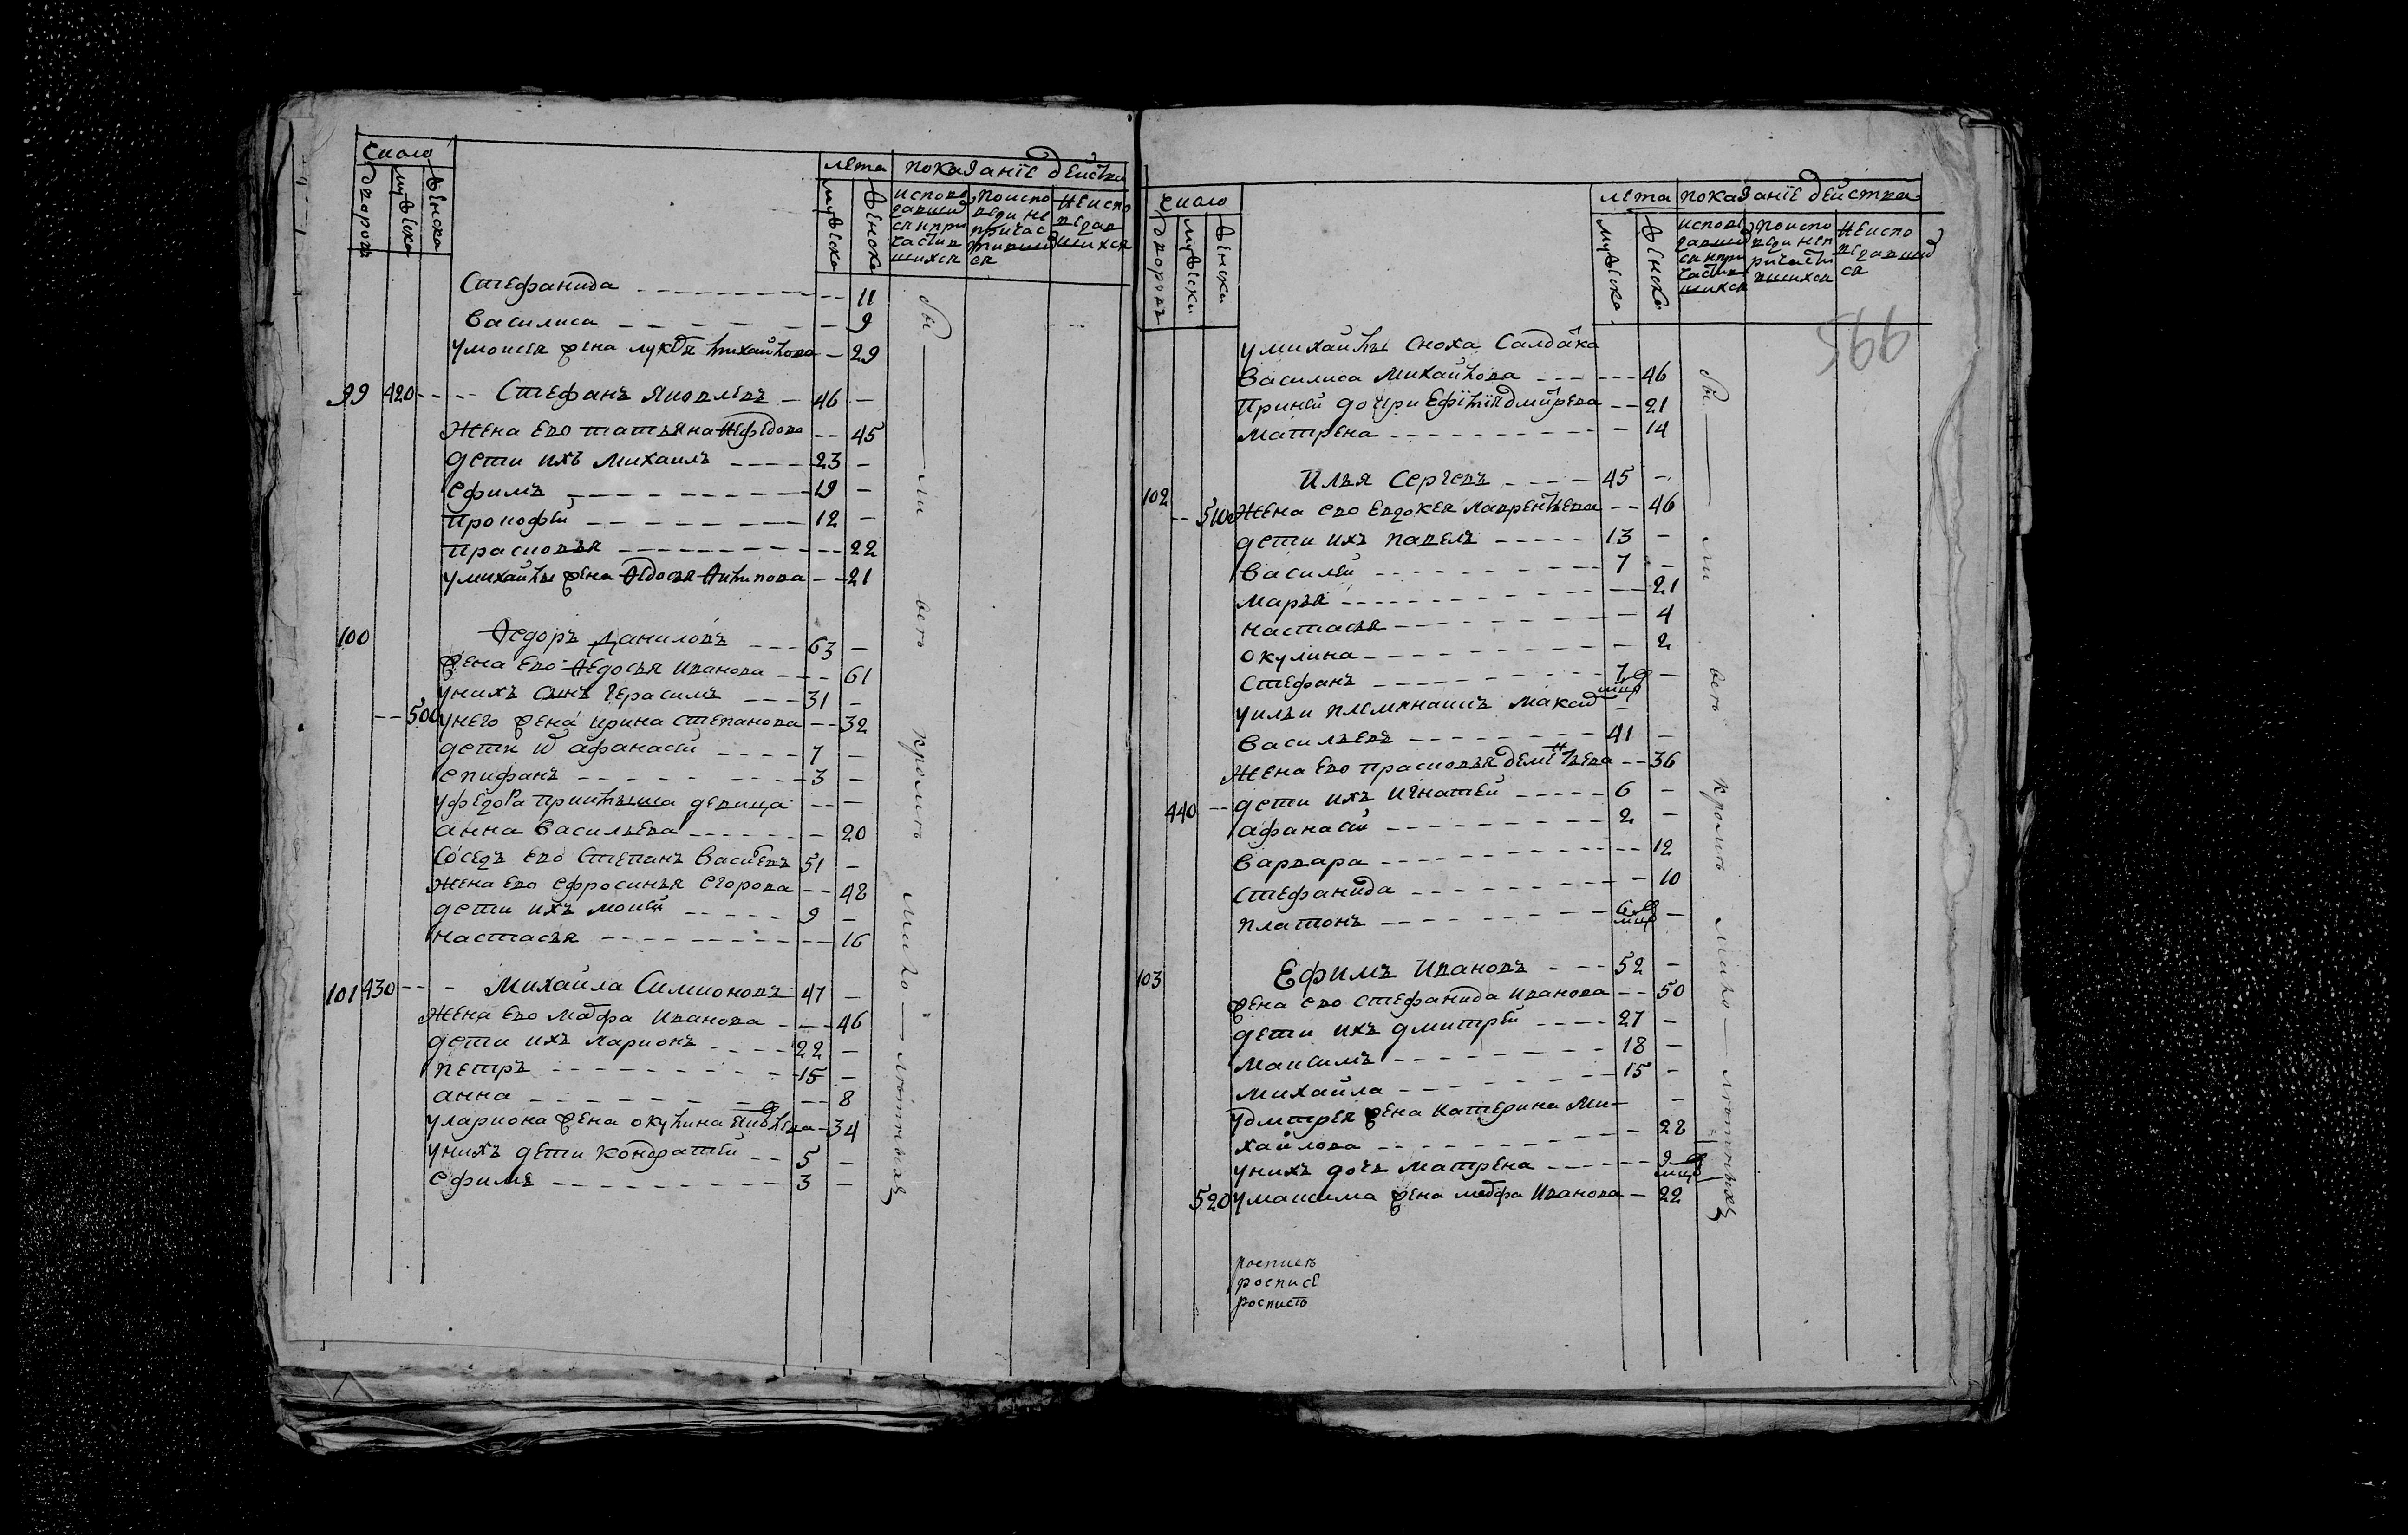 Число
дворовъ
мужеска
женска
лета
мужеска
женска
показанїе действа
исповедавшихся и причастившихся
по исповеди не причастившихся
не исповедавшихся
Стефанида - - 11
Василиса - - 9
у моисея жена лукѣя михайлова - 29
99 420 - - Стефанъ Яковлевъ - 46 -
жена ево татьяна Нефедова - - 45
дети ихъ Михаилъ - - 23 -
Ефимъ - - 19 -
Прокофей - - 12 -
Прасковья - - 22
у михайлы жена Ѳедосья Антипова - - 21
100 Ѳедоръ Даниловъ - - 63 -
жена ево Ѳедосья Иванова - - 61
у нихъ сынъ Герасимъ - - 31 -
- - 500 у него жена ирина степанова - - 32
дети их афанасей - - 7 -
епифанъ - - 3 -
у федора приимыша девица - - -
анна Васильева - - 20
Соседъ ево Степанъ Васильевъ 51 -
жена ево ефросинья егорова - - 48
дети ихъ моисей - - 9 -
настасья - - 16
101 430 - - Михаила Симионовъ 47 -
жена ево марфа Иванова - - 46
дети ихъ ларионъ - - 22 -
петръ - - 15 -
анна - - 8
у лариона жена окулина - 34
у нихъ дети кондратей - - 5 -
ефимъ - - 3 -
бы ли веѣ кромѣ мало лѣтныхъ
Число
дворовъ
мужески
женски
лета
мужеска
женска
показанїе действа
исповедавшихся и причастившихся
по исповеди не причастившихся
не исповедавшихся
995
у михайлы сноха Салдатка
Василиса Михайлова - - 46
при ней дочери Ефимїя дмитрева - - 21
матрена - - 14
102 Илья Сергеевъ - - 45 -
- - 510 жена ево евдокея лаврентьева - - 46
дети ихъ павелъ - - 13 -
Василей - - 7 -
марья - - 21
настасья - - 4
окулина - - 2
Стефанъ - - 7 мцо -
у ильи племянникъ Максим -
Васильевъ - - 41 -
жена ево прасковья дементьева - - 36
440 - - дети ихъ игнатей - - 6 -
афанасей - - 2 -
варвара - - 12
стефанида - - 10
платонъ - - 6 мцо -
103 Ефимъ Ивановъ - - 52 -
жена ево стефанида иванова - - 50
дети ихъ дмитрей - - 27 -
максимъ - - 18 -
михайла - - 15 -
у дмитрея жена катерина Ми-
хайлова - - 28
у нихъ дочь матрена - - 9 мцо
520 у максима жена марфа Иванова - 22
бы ли веѣ кромѣ мало лѣтныхъ
роспись
росписе
роспись